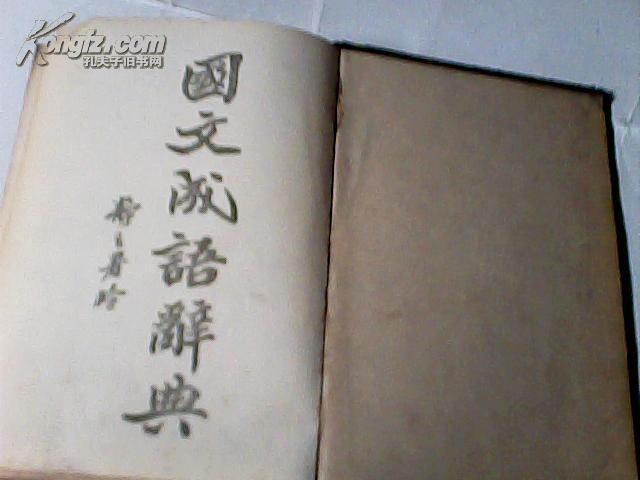 Kongfz.com
孔夫子旧书网
國文成語辭典